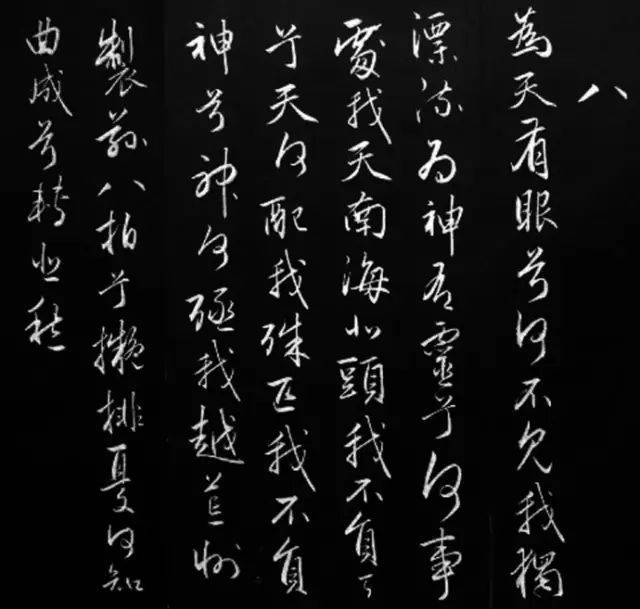 八
為天有眼兮何不見我獨
漂流為神有靈兮何事
處我天南海北頭我不負
兮天何配我殊匹我不負
神兮神何殛我越荒州
製茲八拍兮擬排憂何知
曲成兮轉悲愁